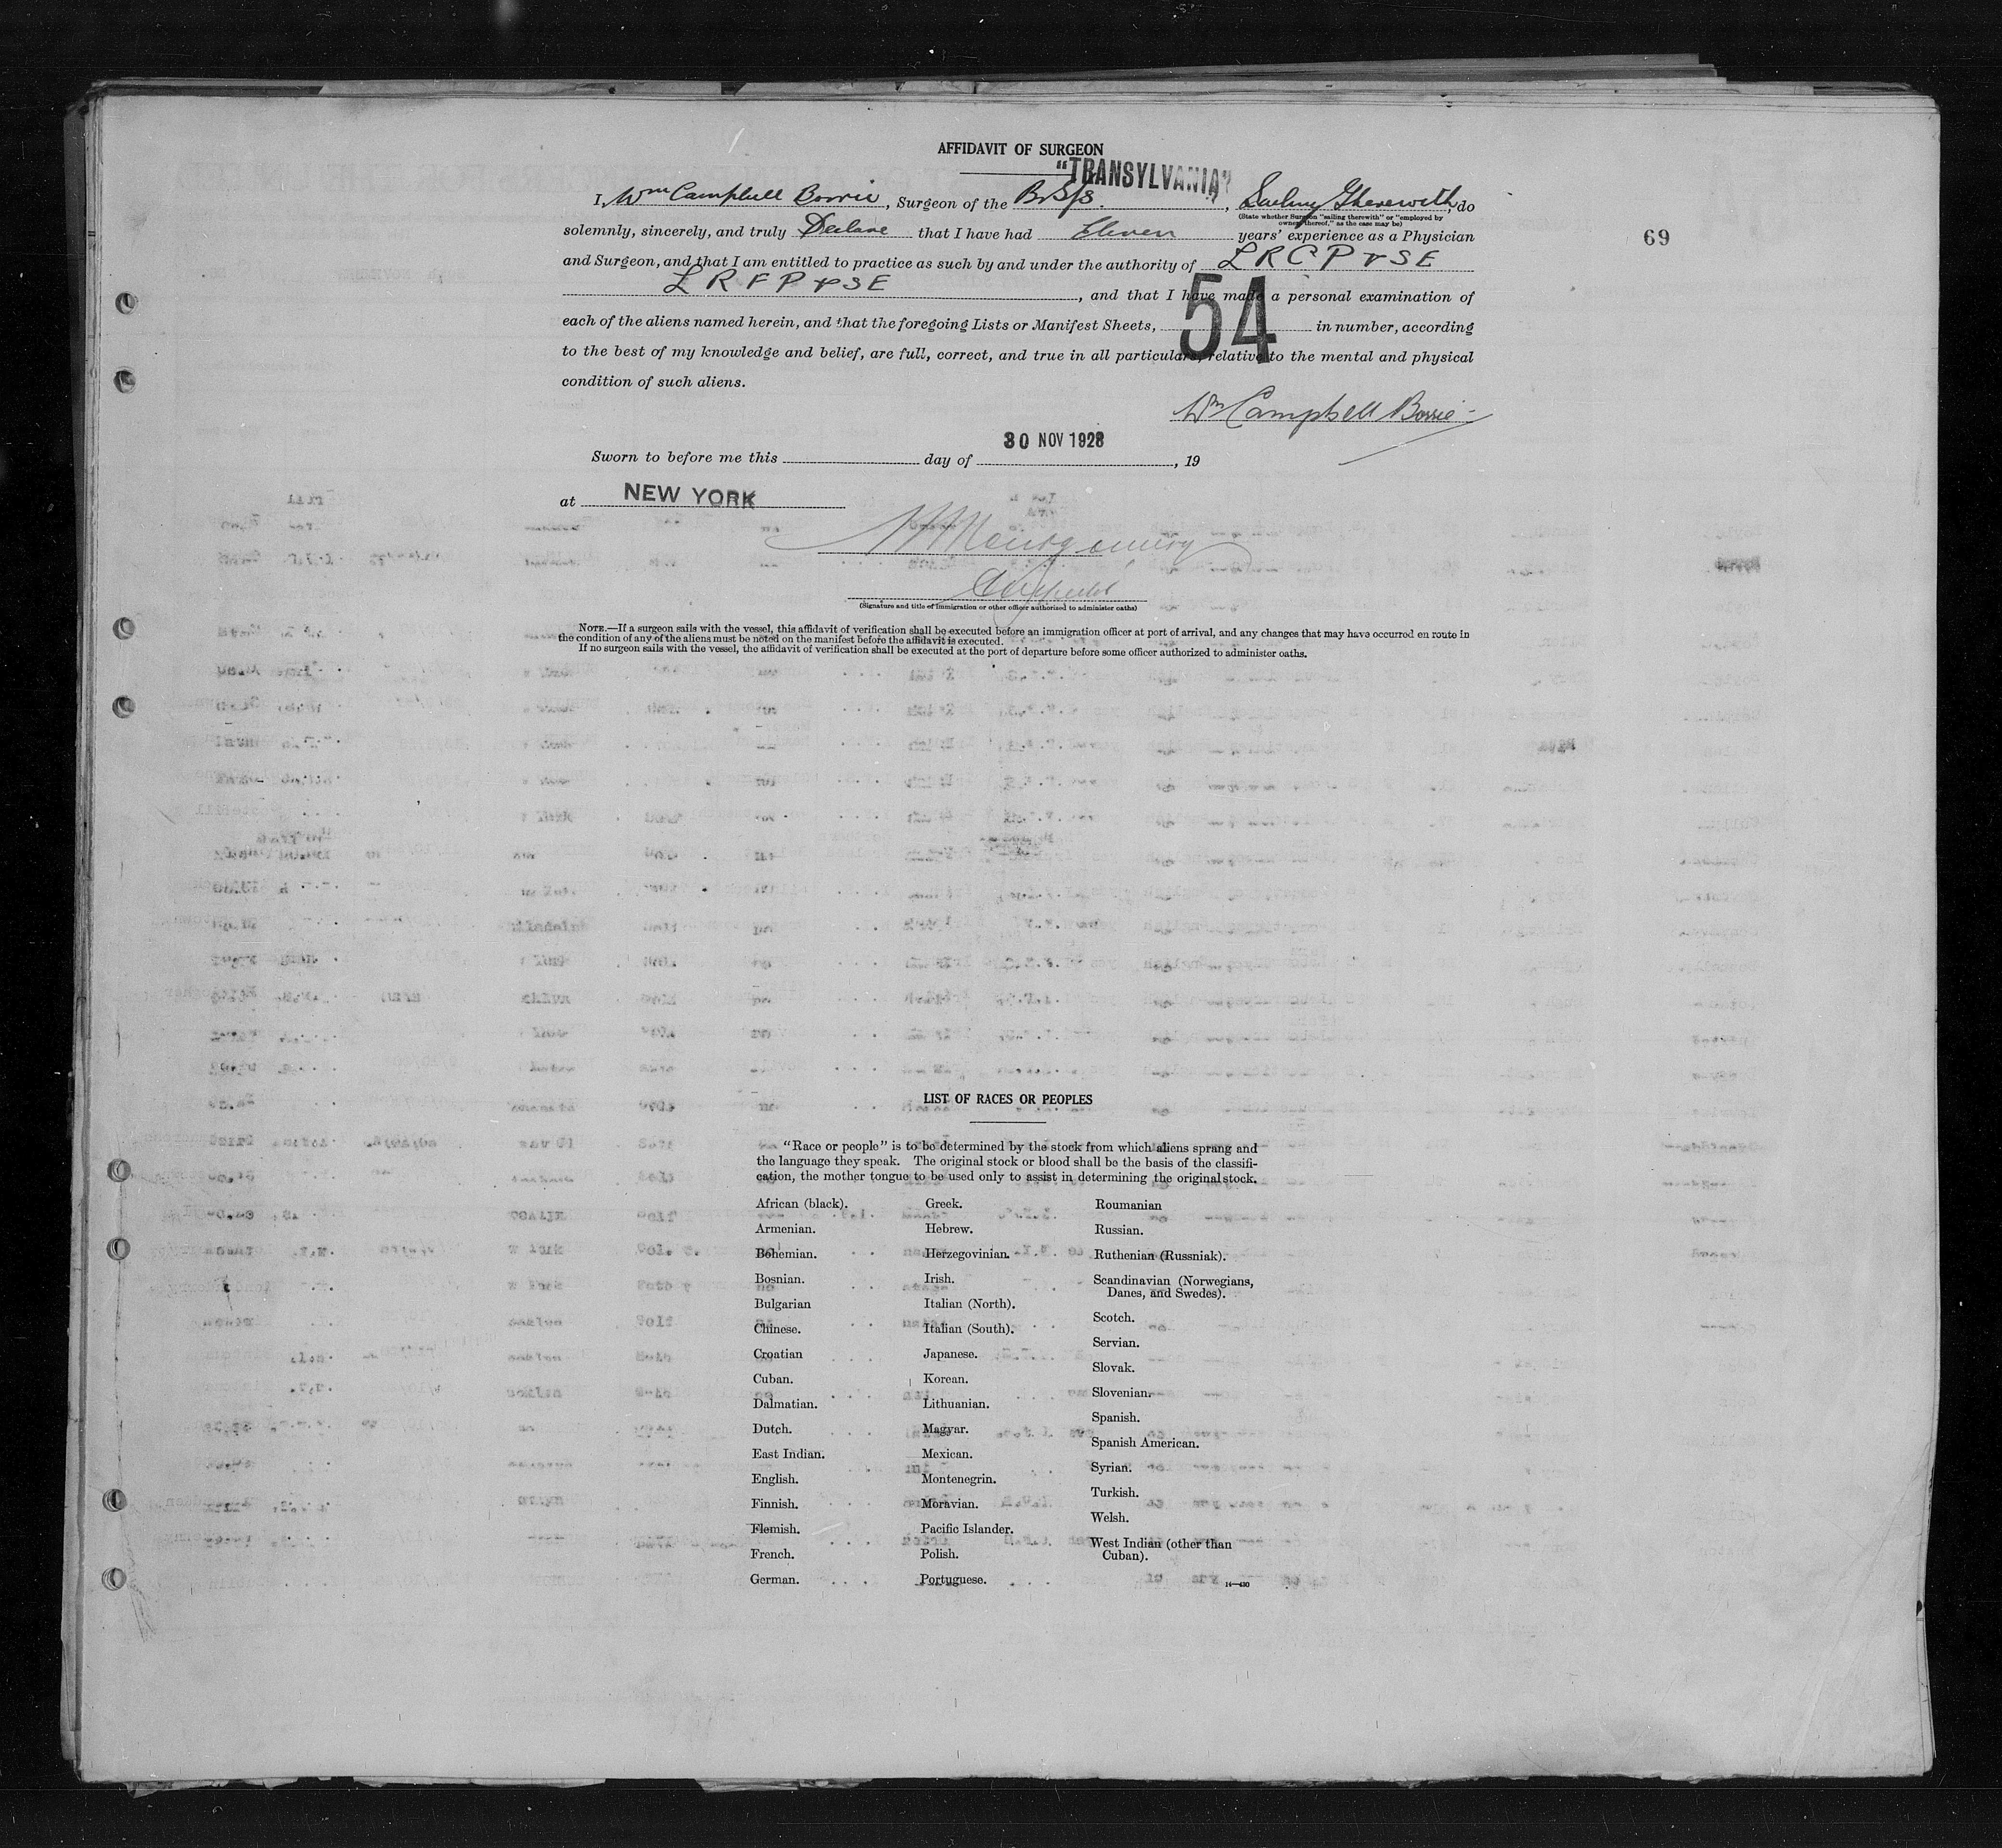 AFFIDAVIT OF SURGEON
"TRANSYLVANIA"
I, Wm Campbell Borrie, Surgeon of the Br S/s., Sailing Therewith, do
(State whether Surgeon "sailing therewith" or "employed by
owners thereof," as the case may be)
solemnly, sincerely, and truly Declare that I have had Eleven years' experience as a Physician
69
and Surgeon, and that I am entitled to practice as such by and under the authority of L R C P & S E
L R F P & S E, and that I have made a personal examination of
each of the aliens named herein, and that the foregoing Lists or Manifest Sheets, 54 in number, according
to the best of my knowledge and belief, are full, correct, and true in all particulars, relative to the mental and physical
condition of such aliens.
Wm Campbell Borrie
30 NOV 1928
Sworn to before me this day of , 19
at NEW YORK
Montgomery
(Signature and title of immigration or other officer authorized to administer oaths)
NOTE.—If a surgeon sails with the vessel, this affidavit of verification shall be executed before an immigration officer at port of arrival, and any changes that may have occurred en route in
the condition of any of the aliens must be noted on the manifest before the affidavit is executed.
If no surgeon sails with the vessel, the affidavit of verification shall be executed at the port of departure before some officer authorized to administer oaths.
LIST OF RACES OR PEOPLES
"Race or people" is to be determined by the stock from which aliens sprang and
the language they speak. The original stock or blood shall be the basis of the classifi-
cation, the mother tongue to be used only to assist in determining the original stock.
African (black).
Armenian.
Bohemian.
Bosnian.
Bulgarian
Chinese.
Croatian
Cuban.
Dalmatian.
Dutch.
East Indian.
English.
Finnish.
Flemish.
French.
German.
Greek.
Hebrew.
Herzegovinian.
Irish.
Italian (North).
Italian (South).
Japanese.
Korean.
Lithuanian.
Magyar.
Mexican.
Montenegrin.
Moravian.
Pacific Islander.
Polish.
Portuguese.
Roumanian
Russian.
Ruthenian (Russniak).
Scandinavian (Norwegians,
Danes, and Swedes).
Scotch.
Servian.
Slovak.
Slovenian.
Spanish.
Spanish American.
Syrian.
Turkish.
Welsh.
West Indian (other than
Cuban).
14—430